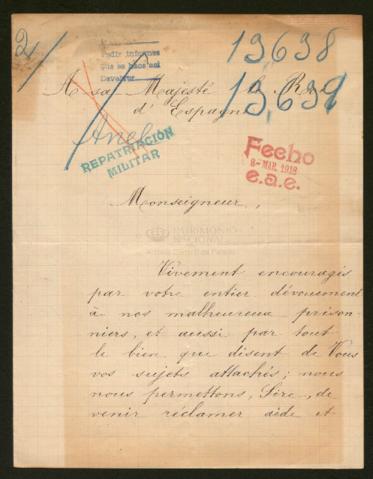 2/
Pedir informes
que se hace así
Devolver
13,638
13,639
A sa Majesté
d'Espagne
REPATRIACIÓN
MILITAR
Fecho
8- MAR. 1918
e.a.e.
Monseigneur,
PATRIMONIO
NACIONAL
Vivement encouragés
par votre entier dévouement
à nos malheureux prison-
niers, et aussi par tout
le bien que disent de Vous
vos sujets attachés; nous
nous permettons, Sire, de
venir réclamer aide et